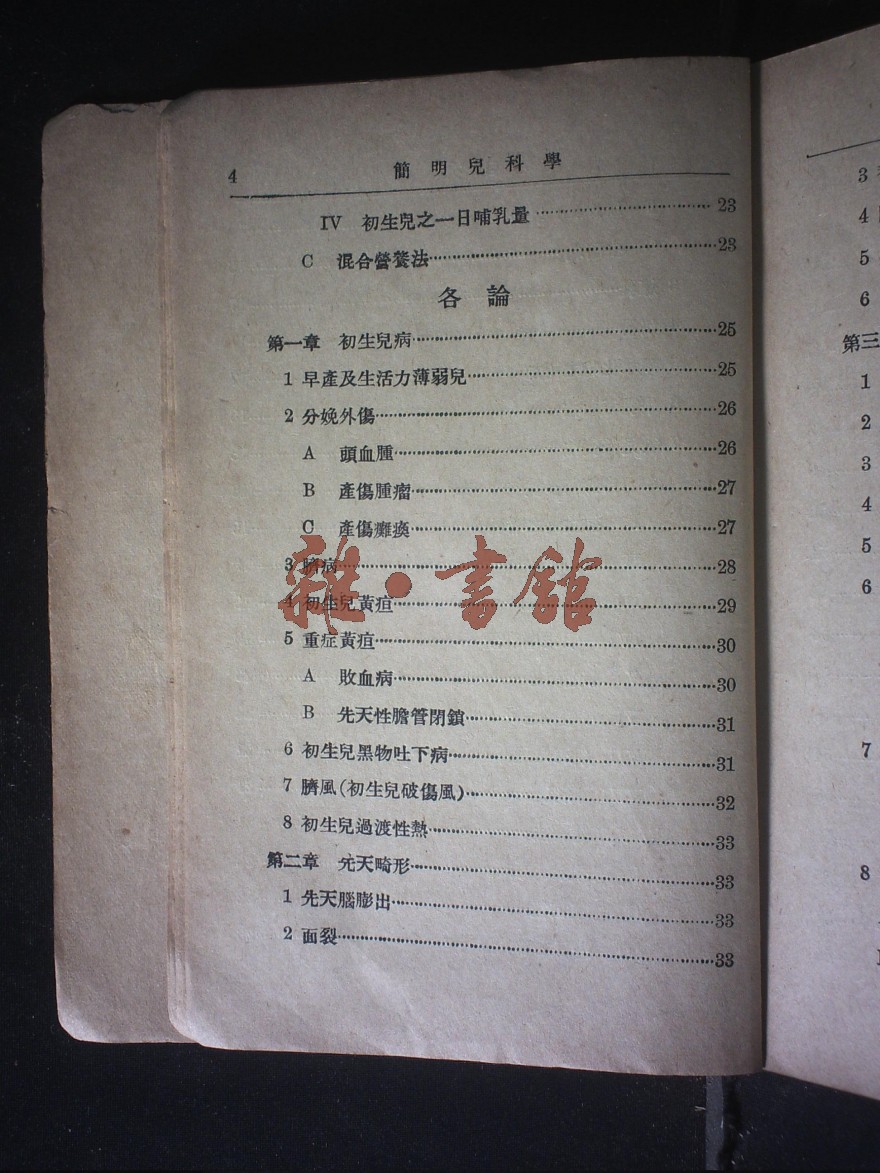 4 簡明兒科學
IV 初生兒之一日哺乳量 23
C 混合營養法 23
各論
第一章 初生兒病 25
1 早產及生活力薄弱兒 25
2 分娩外傷 26
A 頭血腫 26
B 產傷腫瘤 27
C 產傷癱瘓 27
3 臍病 28
4 初生兒黃疸 29
5 重症黃疸 30
A 敗血病 30
B 先天性膽管閉鎖 31
6 初生兒黑物吐下病 31
7 臍風(初生兒破傷風) 32
8 初生兒過渡性熱 33
第二章 先天畸形 33
1 先天腦膨出 33
2 面裂 33
雜·書館
3
4
5
6
第三
1
2
3
4
5
6
7
8